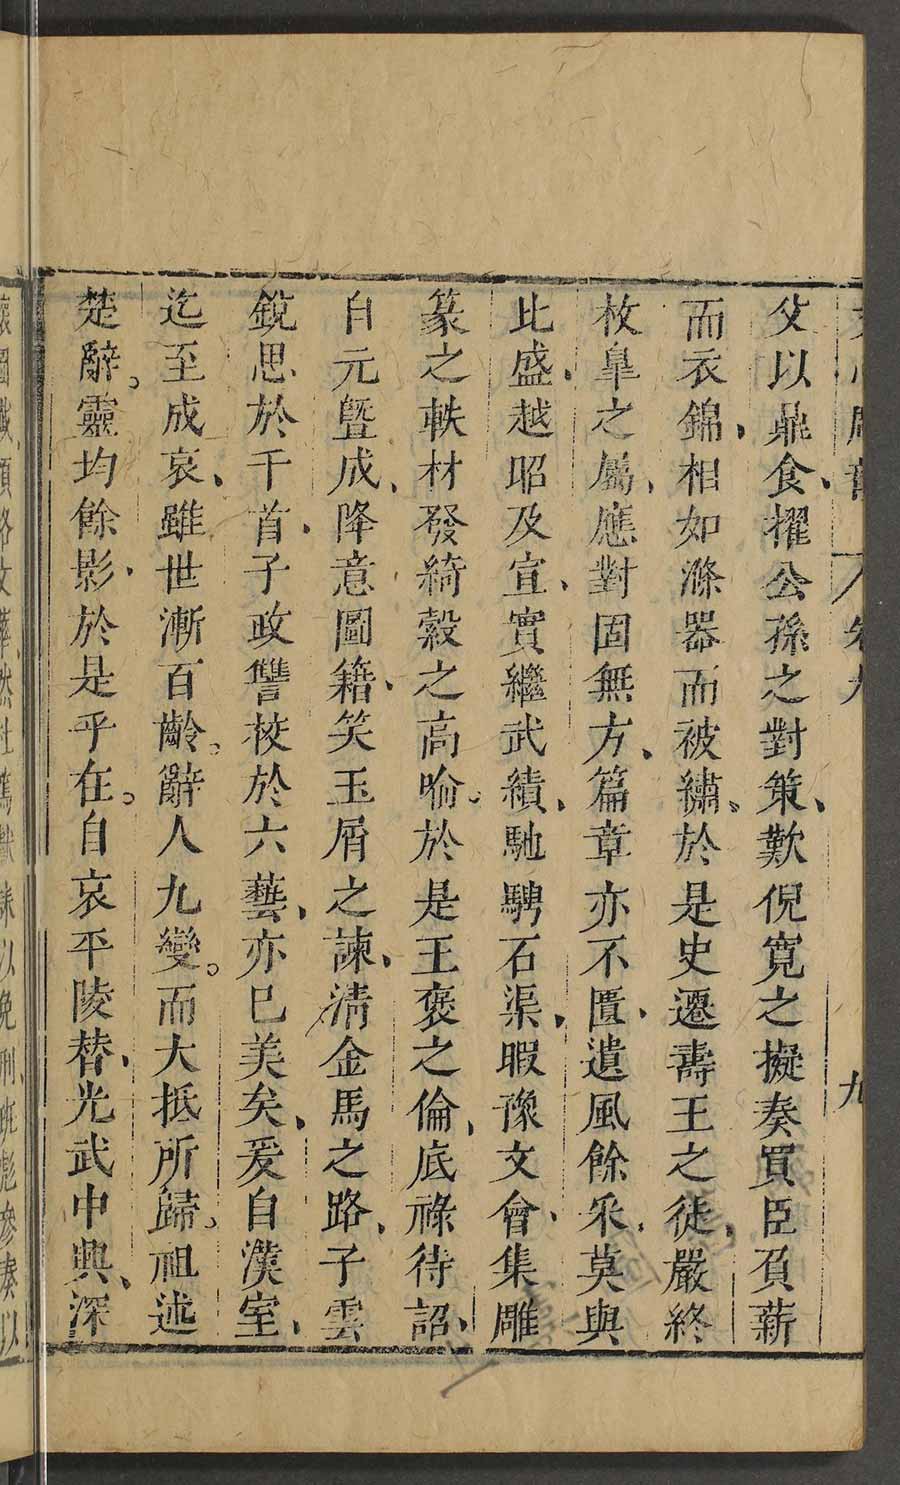 父以鼎食、擢公孫之對策、歎倪寬之擬奏買臣負薪
而衣錦、相如滌器而被繡、於是史遷壽王之徒、嚴終
枚臯之屬、應對固無方、篇章亦不匱、遺風餘采、莫與
比盛、越昭及宣、實繼武績、馳騁石渠、暇豫文會、集雕
篆之軼材、發綺縠之高喻。於是王褒之倫、底祿待詔、
自元曁成、降意圖籍、笑玉屑之諫、清金馬之路、子雲
銳思於千首、子政讐校於六藝、亦已美矣、爰自漢室、
迄至成哀、雖世漸百齡。辭人九變。而大抵所歸、祖述
楚辭。靈均餘影、於是乎在。自哀平陵替、光武中興、深